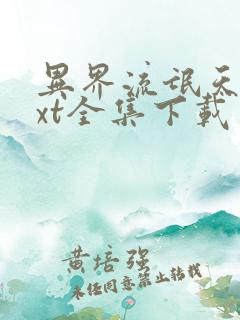 異界流氓天
xt全集下載
黄培强
未任同意禁止转载